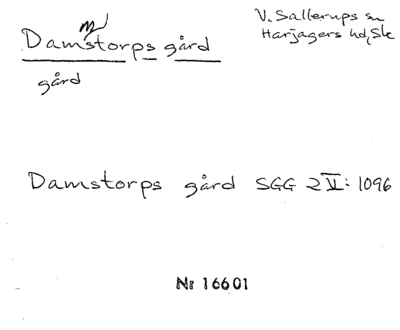 Damstorps gård
m
V. Sallerups sn
Harjagers hd, Sk
gård
Damstorps gård SGG 2 V: 1096
Nr 16601